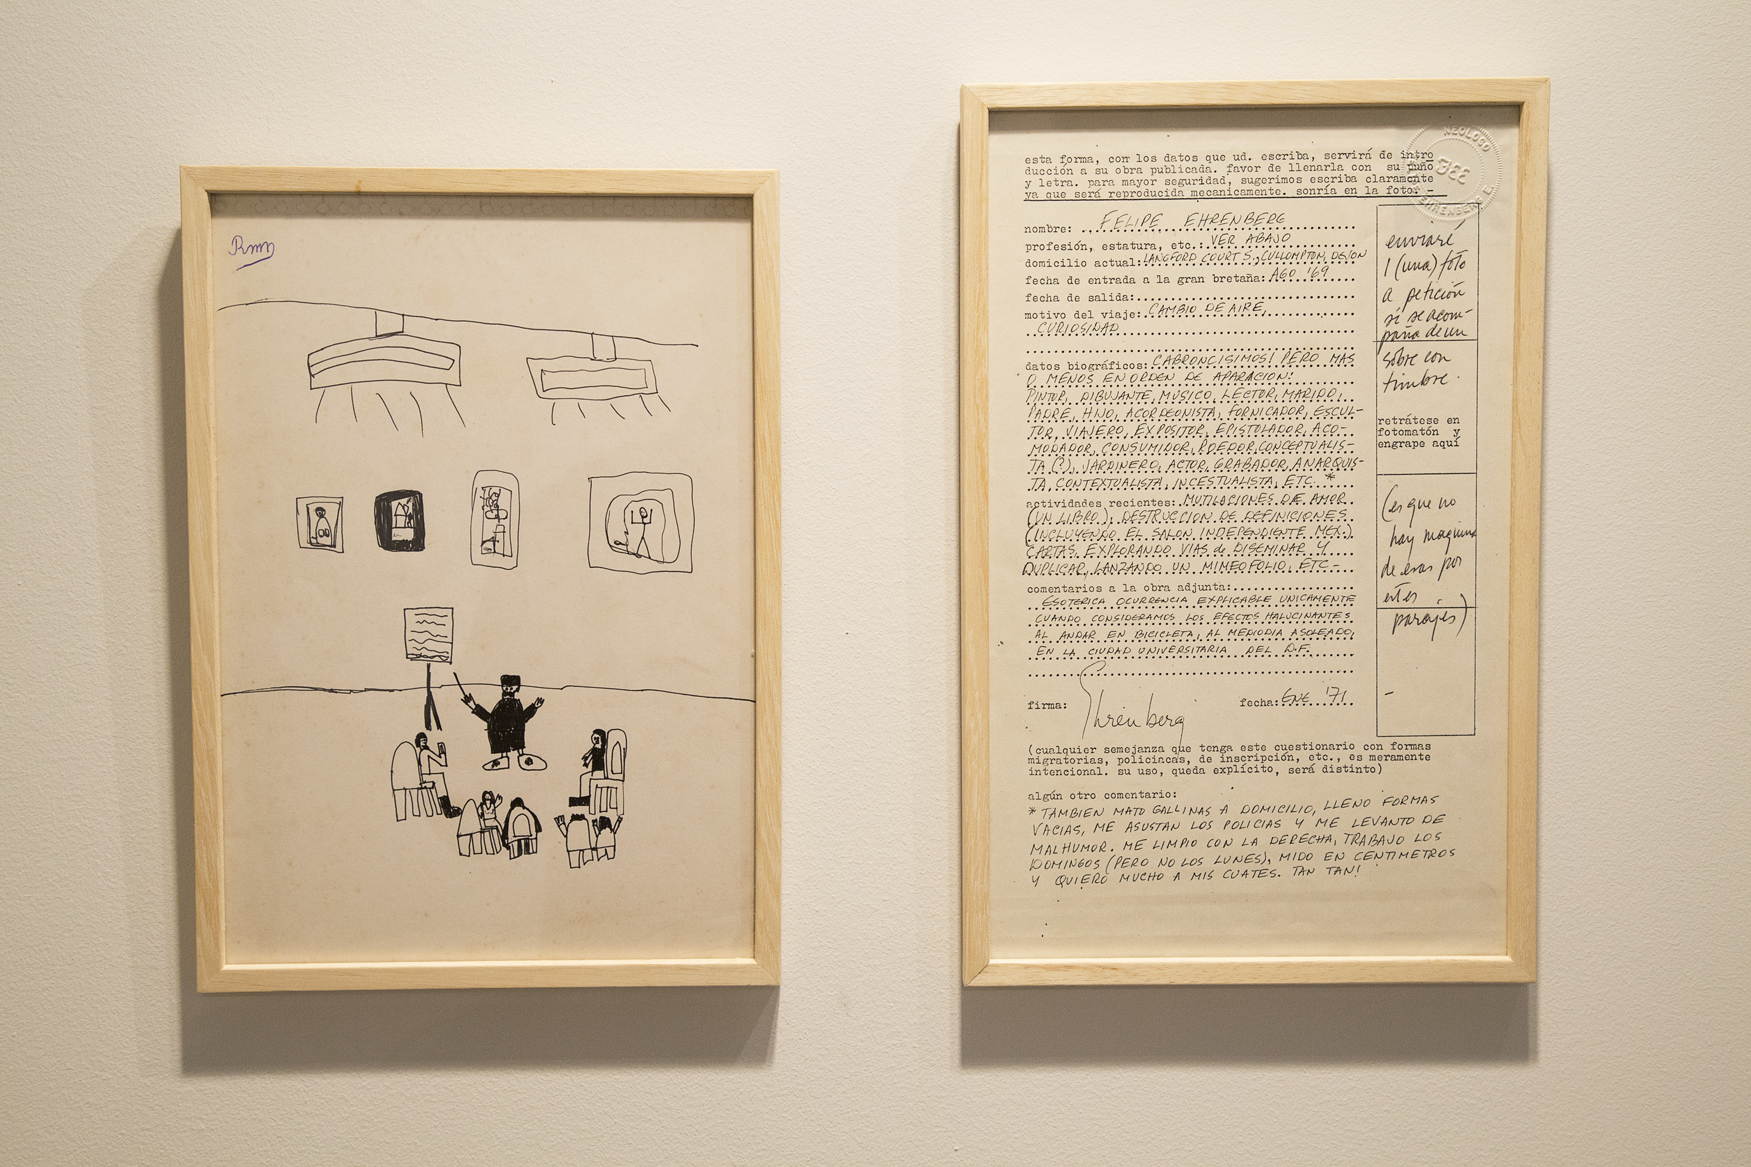 Rmn
esta forma, con los datos que ud. escriba, servirá de intro
ducción a su obra publicada. favor de llenarla con su puño
y letra. para mayor seguridad, sugerimos escriba claramente
ya que será reproducida mecanicamente. sonría en la foto. -
NEOLOGO
EHRENBERG
nombre: FELIPE EHRENBERG
profesión, estatura, etc.: VER ABAJO
domicilio actual: LANGFORD COURT S., CULLOMPTON, DEVON
fecha de entrada a la gran bretaña: AGO '69
fecha de salida:
motivo del viaje: CAMBIO DE AIRE,
CURIOSIDAD
datos biográficos: CABRONCISIMOS! PERO MAS
O MENOS EN ORDEN DE APARACION:
PINTOR, DIBUJANTE, MUSICO, LECTOR, MARIDO,
PADRE, HIJO, ACORDEONISTA, FORNICADOR, ESCUL-
TOR, VIAJERO, EXPOSITOR, EPISTOLADOR, ACO-
MODADOR, CONSUMIDOR, PDEDOR, CONCEPTUALIS-
TA (?), JARDINERO, ACTOR, GRABADOR, ANARQUIS-
TA, CONTEXTUALISTA, INCESTUALISTA, ETC. *
actividades recientes: MUTILACIONES DE AMOR
(UN LIBRO), DESTRUCCION DE DEFINICIONES
(INCLUYENDO EL SALON INDEPENDIENTE MEX.)
CARTAS EXPLORANDO VIAS de DISEMINAR Y
DUPLICAR, LANZANDO UN MIMEOFOLIO, ETC-
comentarios a la obra adjunta:
ESOTERICA OCURRENCIA EXPLICABLE UNICAMENTE
CUANDO CONSIDERAMOS LOS EFECTOS HALUCINANTES
AL ANDAR EN BICICLETA, AL MEDIODIA ASOLEADO,
EN LA CIUDAD UNIVERSITARIA DEL D.F.
firma: Ehrenberg fecha: ENE '71
enviaré
1 (una) foto
a petición
si se acom-
paña de un
sobre con
timbre.
retrátese en
fotomatón y
engrape aquí
(es que no
hay maquina
de esas por
estos
parajes)
-
(cualquier semejanza que tenga este cuestionario con formas
migratorias, policíacas, de inscripción, etc., es meramente
intencional. su uso, queda explícito, será distinto)
algún otro comentario:
* TAMBIEN MATO GALLINAS A DOMICILIO, LLENO FORMAS
VACIAS, ME ASUSTAN LOS POLICIAS Y ME LEVANTO DE
MALHUMOR. ME LIMPIO CON LA DERECHA, TRABAJO LOS
DOMINGOS (PERO NO LOS LUNES), MIDO EN CENTIMETROS
Y QUIERO MUCHO A MIS CUATES. TAN TAN!